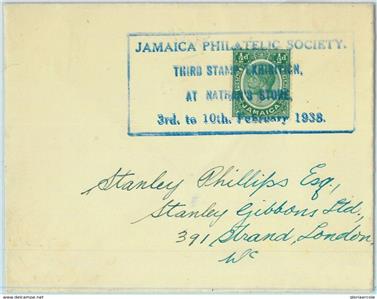 JAMAICA PHILATELIC SOCIETY.
THIRD STAMP EXHIBITION,
AT NATHAN'S STORE,
3rd. to 10th. February 1938.
½d ½d
JAMAICA
Stanley Phillips Esq.,
Stanley Gibbons Ltd.,
391 Strand, London.
WC